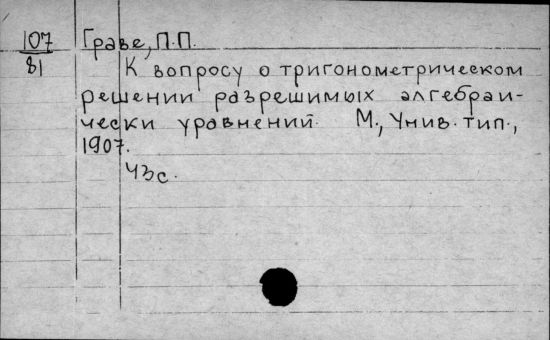 107 Граве, П.П.
81
К вопросу о тригонометрическом
решении разрешимых алгебраи-
чески уравнений. М., Унив. тип.,
1907.
43с.